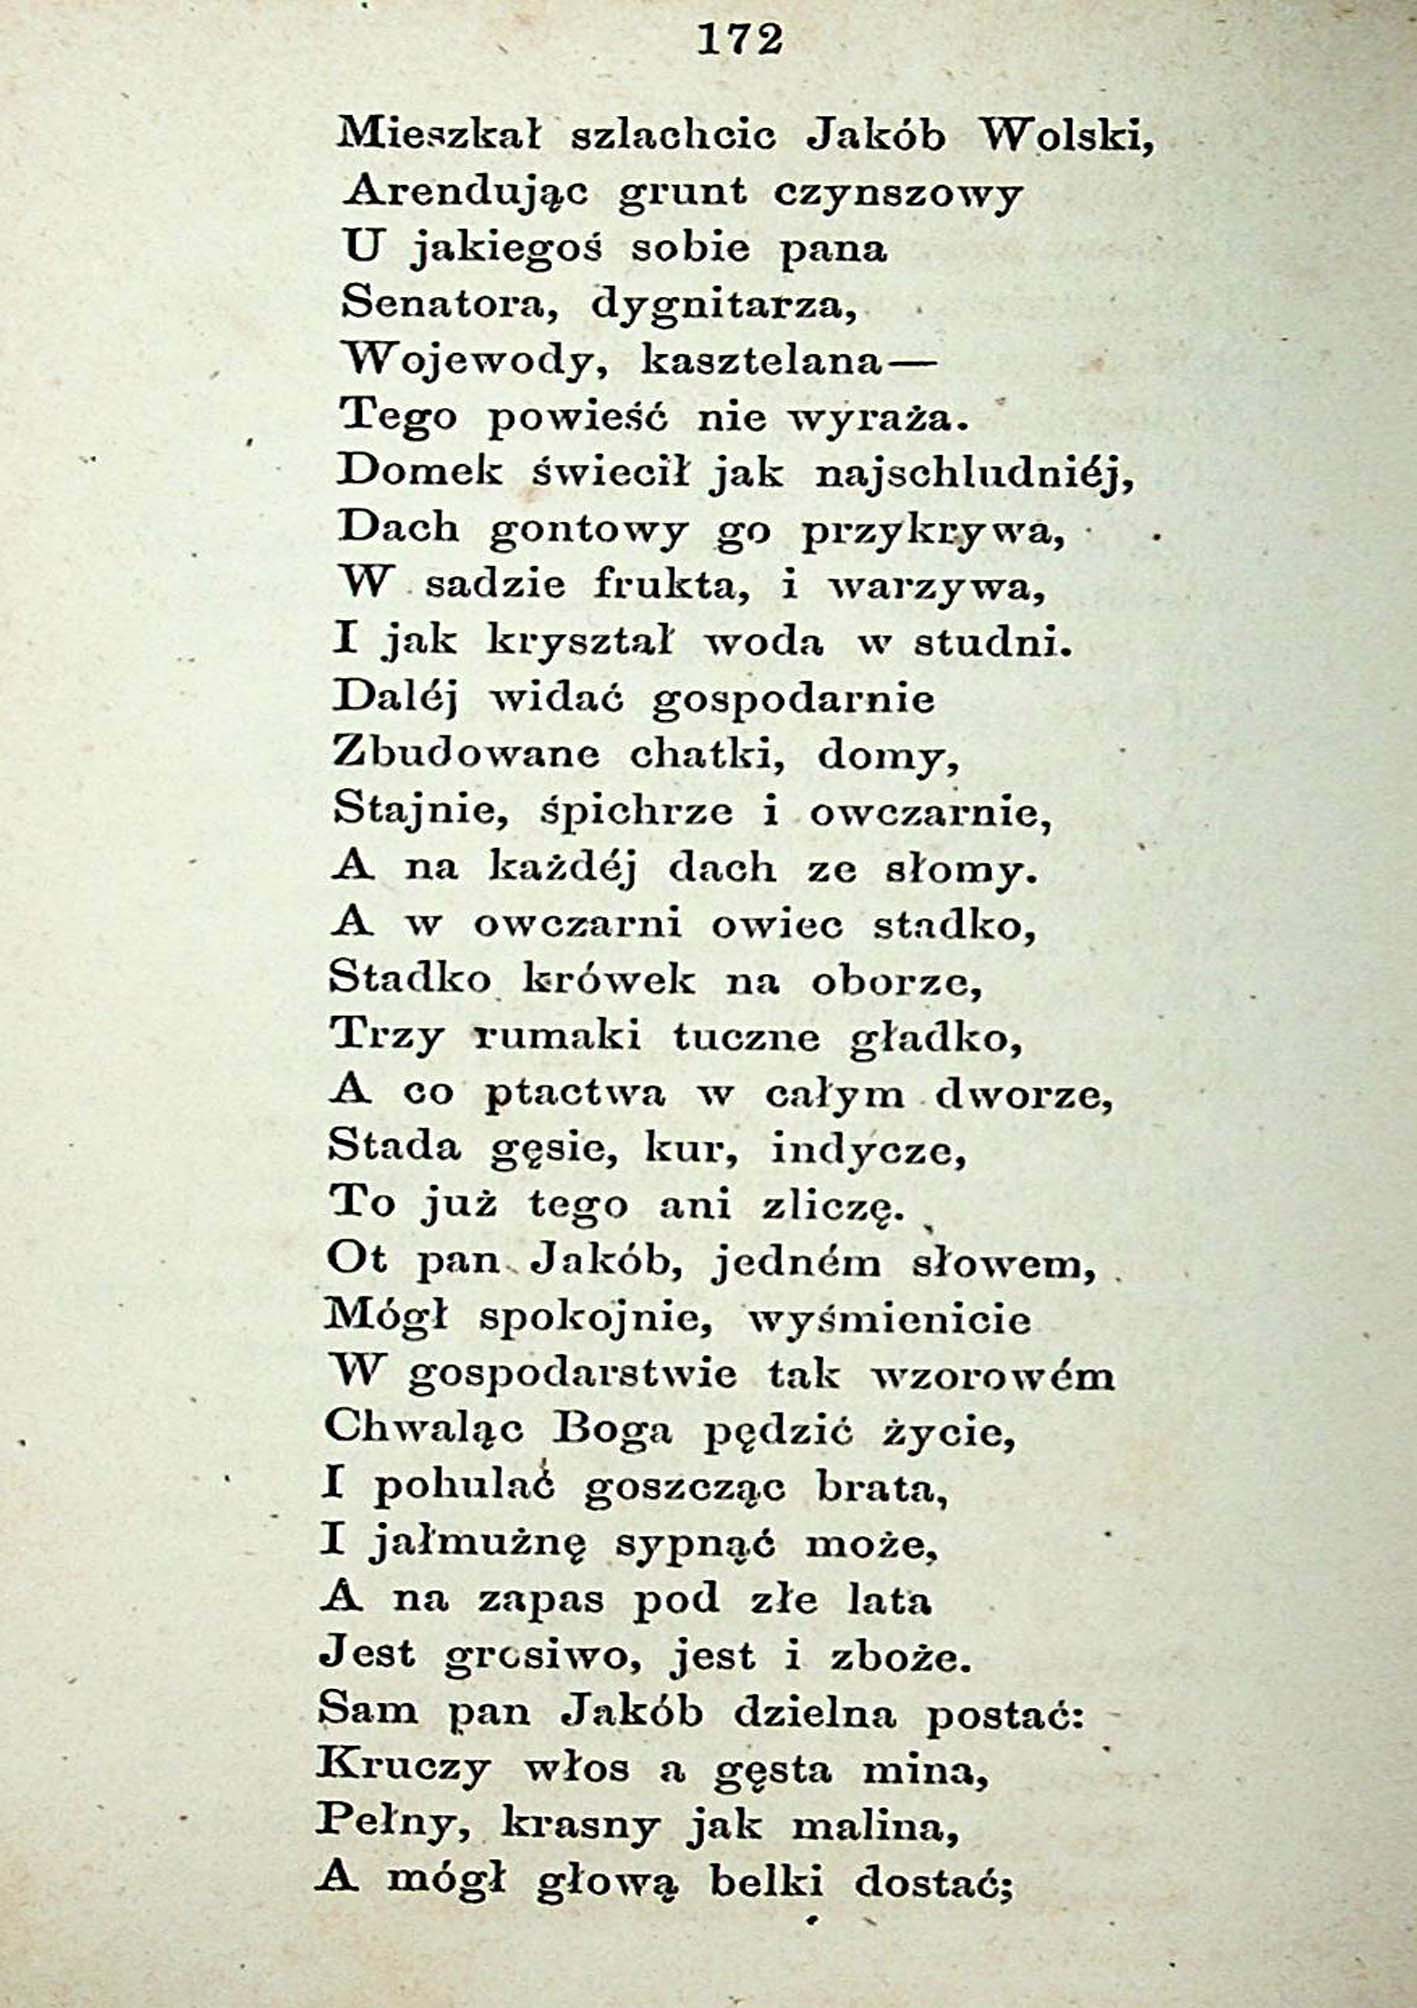 172
Mieszkał szlachcic Jakób Wolski,
Arendując grunt czynszowy
U jakiegoś sobie pana
Senatora, dygnitarza,
Wojewody, kasztelana—
Tego powieść nie wyraża.
Domek świecił jak najschludniéj,
Dach gontowy go przykrywa,
W sadzie frukta, i warzywa,
I jak kryształ woda w studni.
Daléj widać gospodarnie
Zbudowane chatki, domy,
Stajnie, śpichrze i owczarnie,
A na każdéj dach ze słomy.
A w owczarni owiec stadko,
Stadko krówek na oborze,
Trzy rumaki tuczne gładko,
A co ptactwa w całym dworze,
Stada gęsie, kur, indycze,
To już tego ani zliczę.
Ot pan Jakób, jedném słowem,
Mógł spokojnie, wyśmienicie
W gospodarstwie tak wzorowém
Chwaląc Boga pędzić życie,
I pohulać goszcząc brata,
I jałmużnę sypnąć może,
A na zapas pod złe lata
Jest grosiwo, jest i zboże.
Sam pan Jakób dzielna postać:
Kruczy włos a gęsta mina,
Pełny, krasny jak malina,
A mógł głową belki dostać;